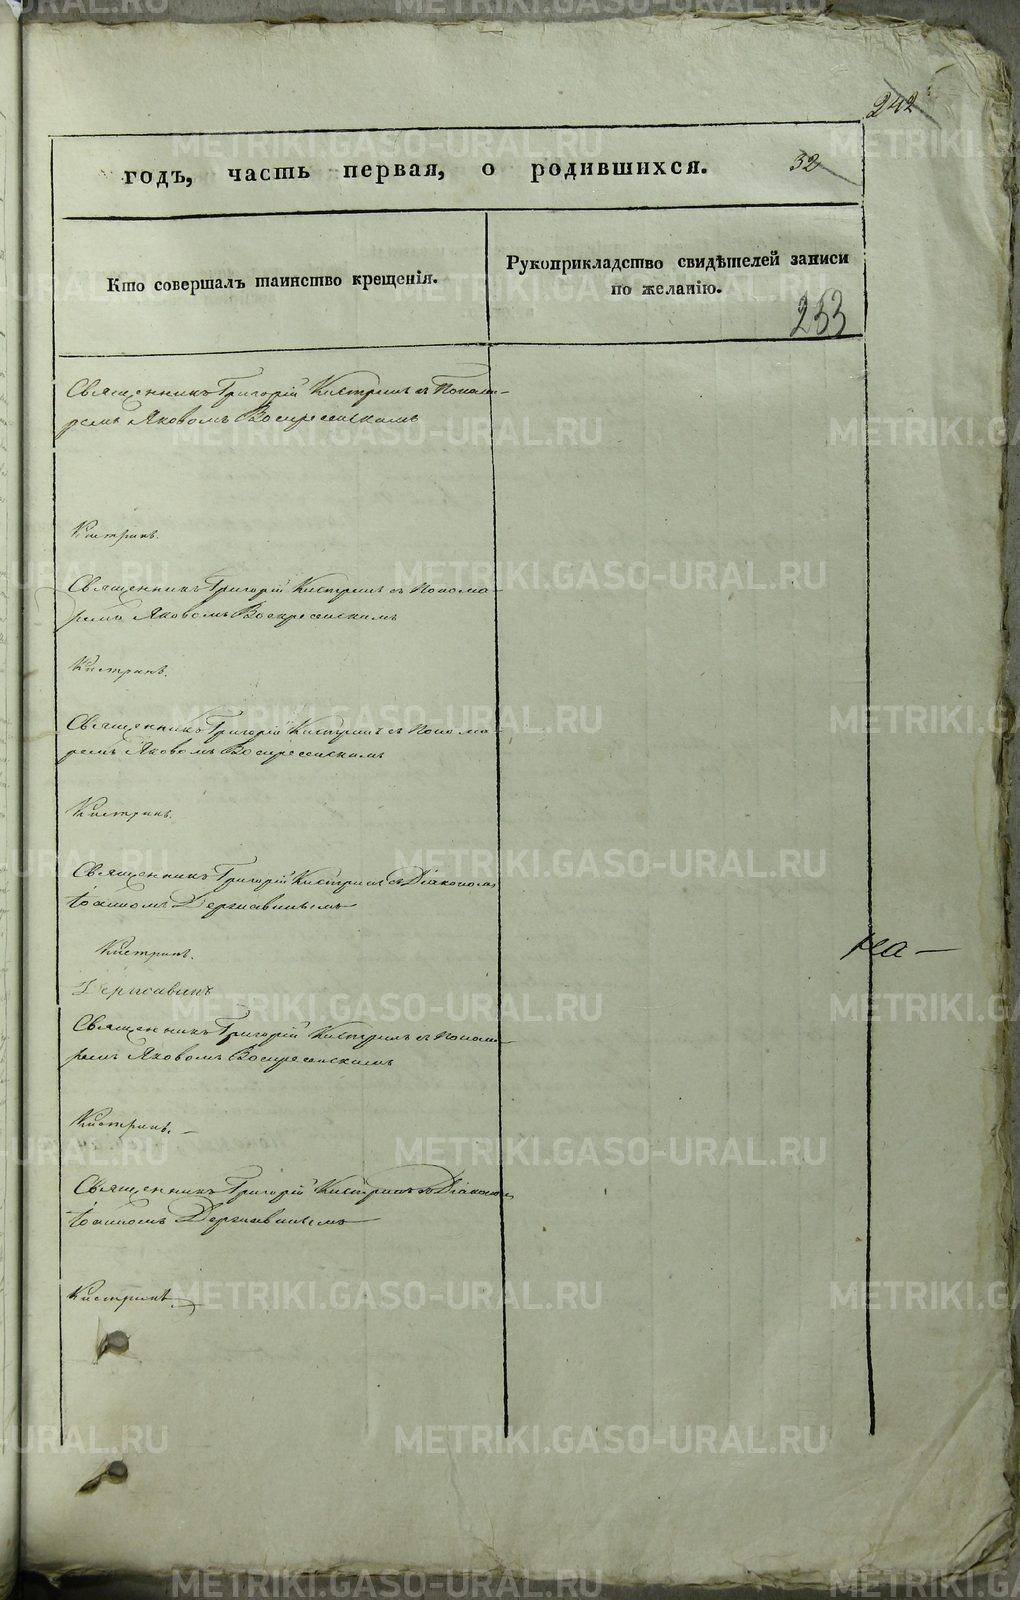 242
годъ, часть первая, о родившихся.
32
Кто совершалъ таинство крещенія.
Рукоприкладство свидѣтелей записи
по желанію.
233
Священникъ Григорій Кистринъ съ Понома-
ремъ Яковомъ Воскресенскимъ
Кистринъ.
Священникъ Григорій Кистринъ съ Понома-
ремъ Яковомъ Воскресенскимъ
Кистринъ.
Священникъ Григорій Кистринъ съ Понома-
ремъ Яковомъ Воскресенскимъ
Кистринъ.
Священникъ Григорій Кистринъ съ Діакономъ
Іоанномъ Державинымъ
Кистринъ.
на-
Державинъ
Священникъ Григорій Кистринъ съ Понома-
ремъ Яковомъ Воскресенскимъ
Кистринъ.
Священникъ Григорій Кистринъ съ Діакономъ
Іоанномъ Державинымъ
Кистринъ.
METRIKI.GASO-URAL.RU